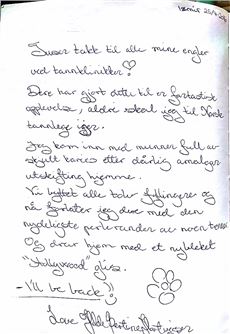 Tusen takk til alle mine engler
ved tannklinikken!
Dere har gjort dette til en fantastisk
opplevelse, aldri skal jeg til Norsk
tannlege igjen.
Jeg kom inn med munnen full av
karies etter dårlig amalgam
utskifting hjemme.
Nå byttet alle
nå forlater jeg dere med den
nydeligste av noen
Og drar hjem med et nybleket
"Hollywood" glis.
- I'll be back!
Love